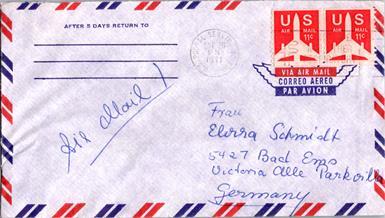 AFTER 5 DAYS RETURN TO
US US
AIR MAIL AIR MAIL
11¢ 11¢
1971
VIA AIR MAIL
CORREO AEREO
PAR AVION
Air Mail!
Frau
Schmidt
5427 Bad Ems
Victoria Alle Parkvilla
Germany